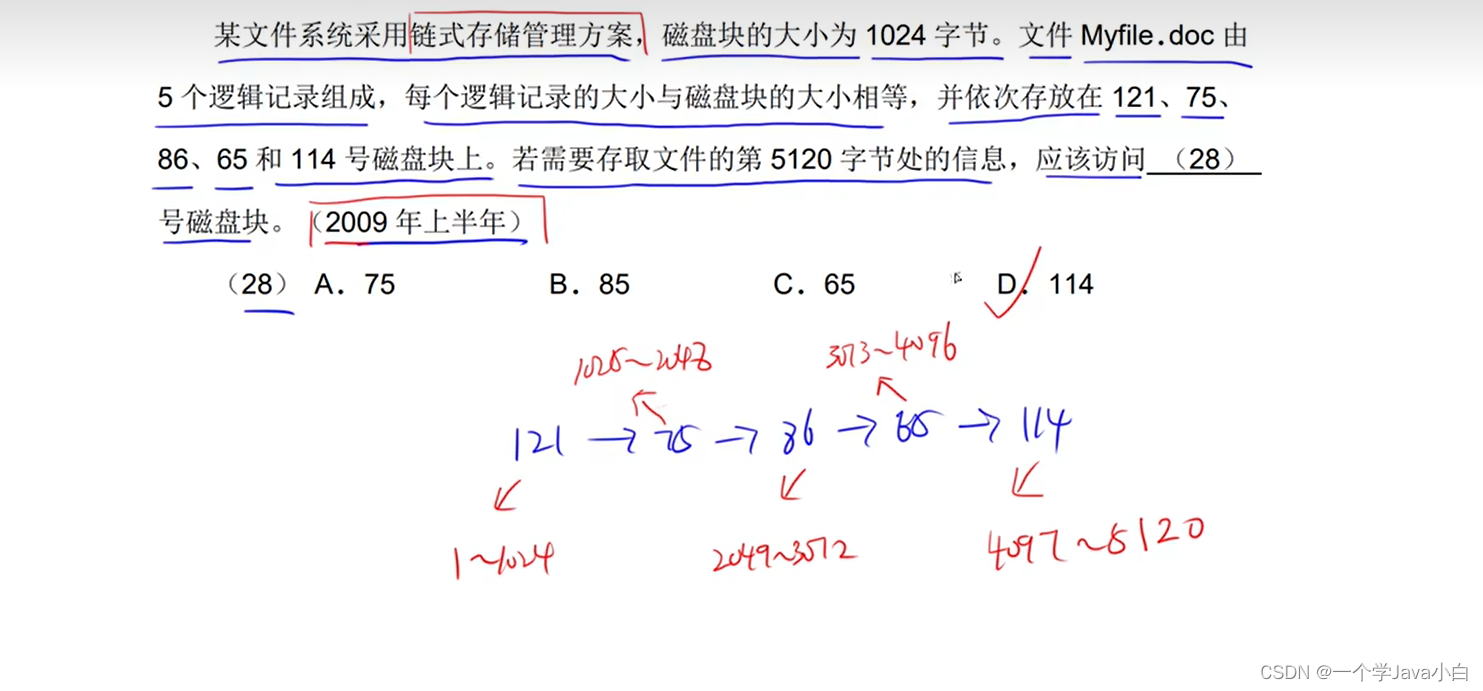 某文件系统采用链式存储管理方案，磁盘块的大小为 1024 字节。文件 Myfile.doc 由
5 个逻辑记录组成，每个逻辑记录的大小与磁盘块的大小相等，并依次存放在 121、75、
86、65 和 114 号磁盘块上。若需要存取文件的第 5120 字节处的信息，应该访问 （28）
号磁盘块。（2009 年上半年）
（28） A．75 B．85 C．65 D．114
1025~2048 3073~4096
121 → 75 → 86 → 65 → 114
1~1024 2049~3072 4097~5120
CSDN @一个学Java小白